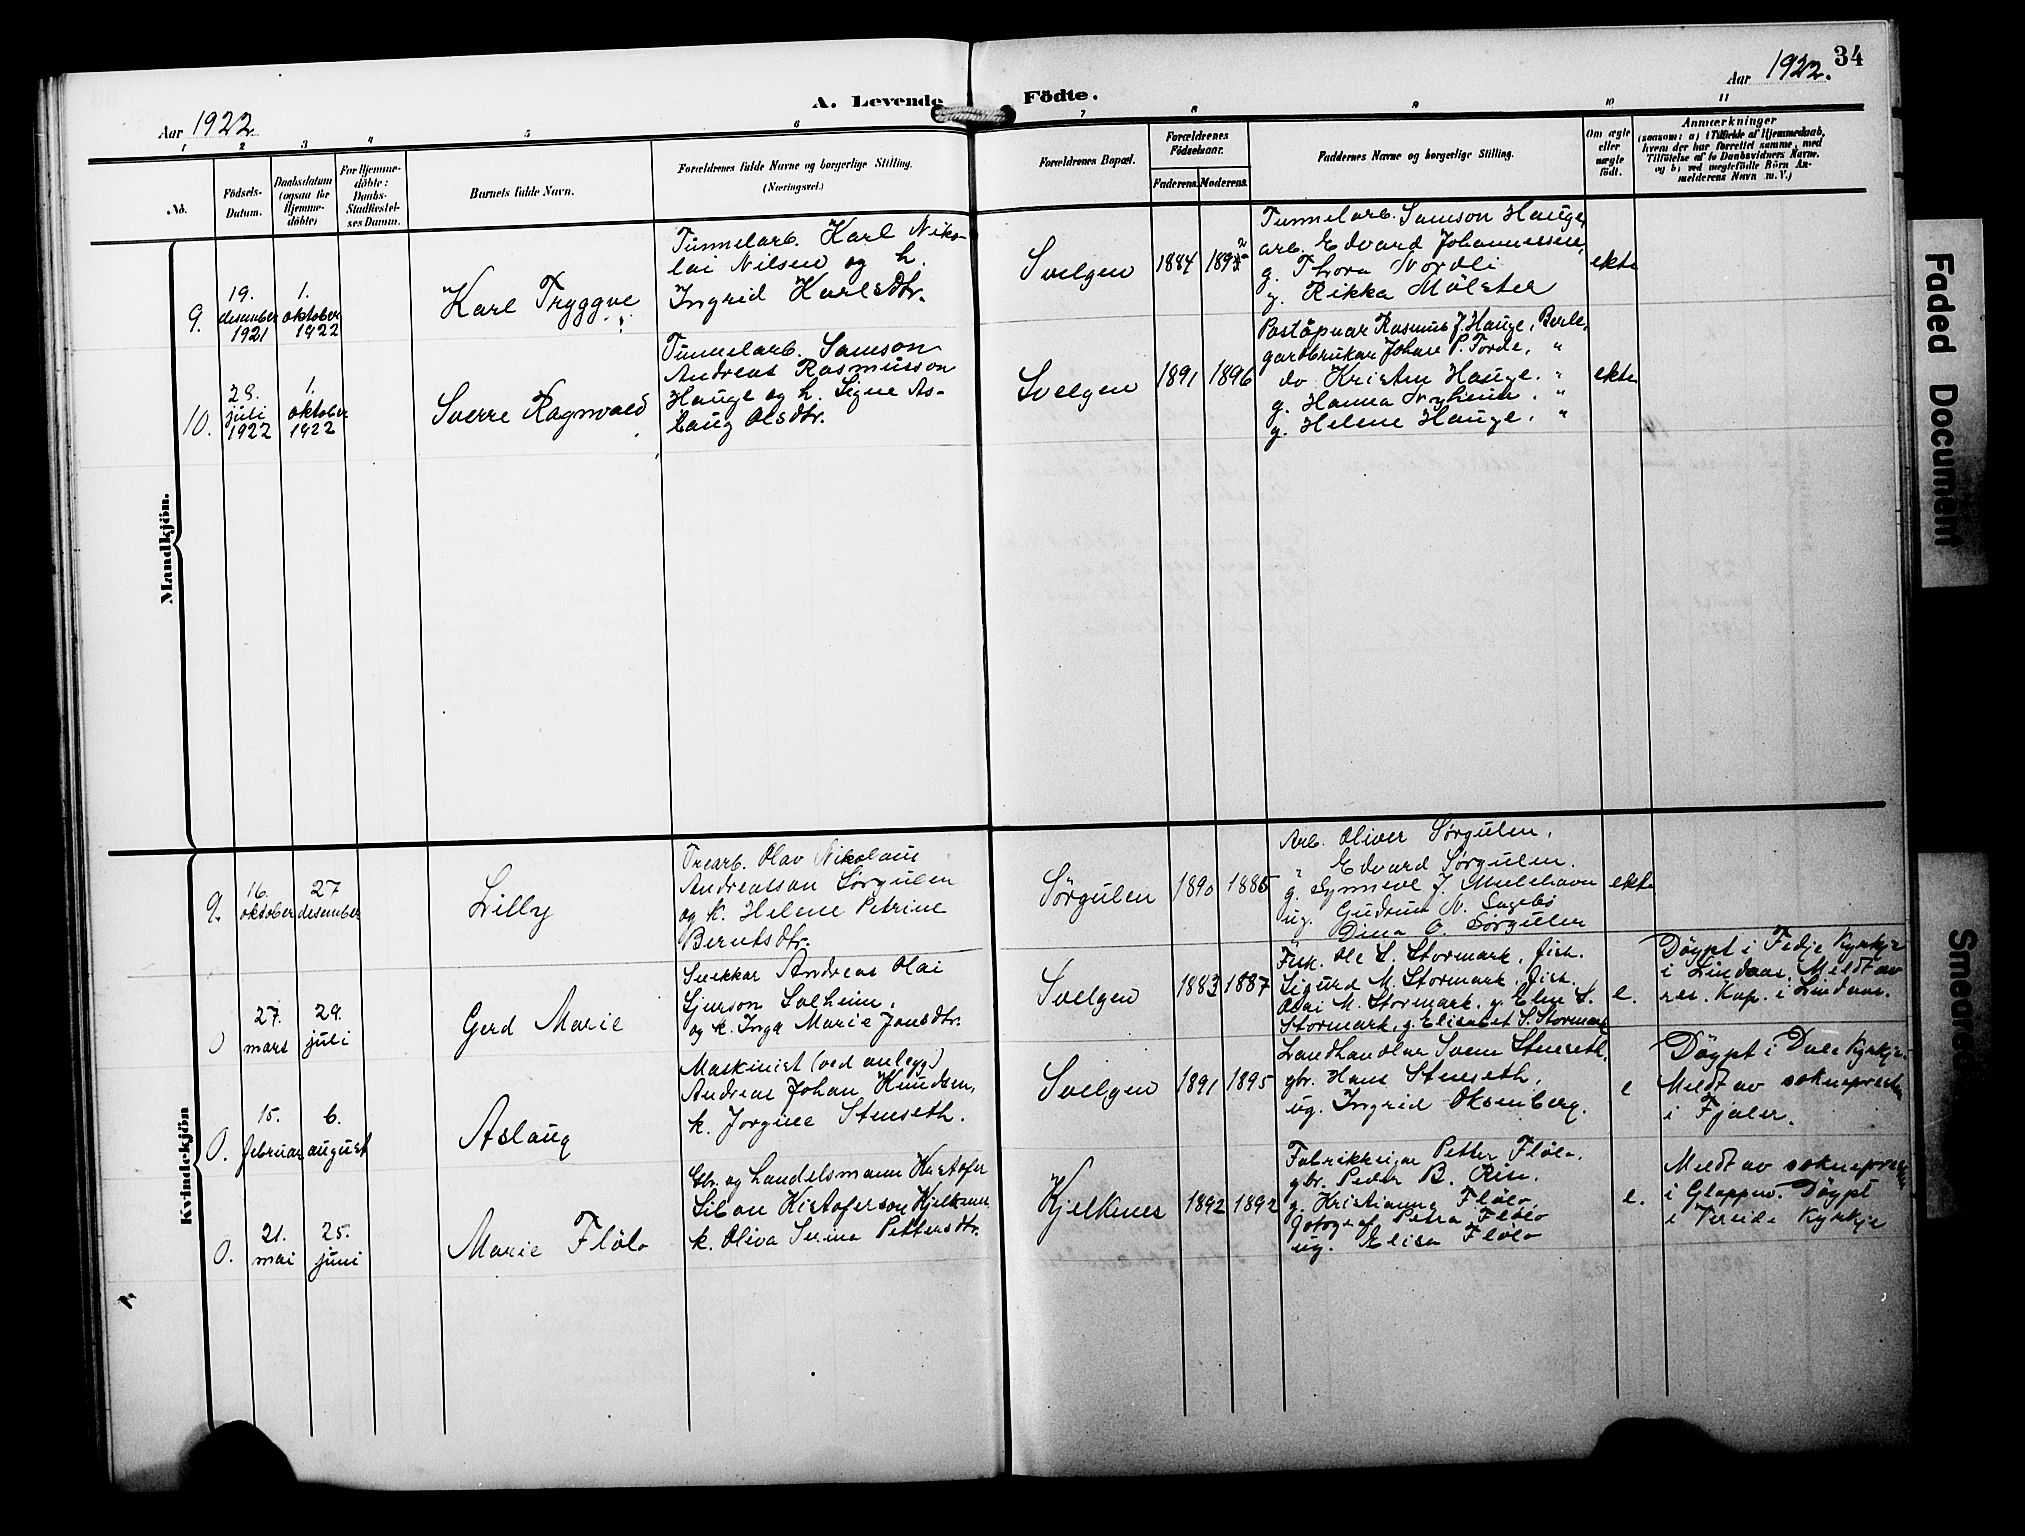 34
Aar 1922.
Aar 1922.
A. Levende Födte.
1 2 3 4 5 6 7 8 9 10 11
No.
Födsels-
Datum.
Daabsdatum
(ogsaa for
Hjemme-
döbte)
For Hjemme-
döbte:
Daabs-
Stadfæstel-
ses Datum.
Barnets fulde Navn.
Forældrenes fulde Navne og borgerlige Stilling.
(Næringsvei.)
Forældrenes Bopæl.
Forældrenes
Födselsaar.
Faderens. Moderens.
Faddernes Navne og borgerlige Stilling.
Om ægte
eller
uægte
født.
Anmærkninger
(saasom: a) i Tilfælde af Hjemmedaab,
hvem der har forrettet samme, med
Tilföielse af to Daabsvidners Navne,
og b) ved uægtefödte Börn An-
melderens Navn m. V.)
Mandkjön.
9.
19.
desember
1921
1.
oktober
1922
Karl Tryggve
Tunnelarb. Karl Niko-
lai Nilsen og h.
Ingrid Karlsdtr.
Svelgen
1884
1892
Tunnelarb. Samson Hauge,
arb. Edvard Johannessen,
g. Thora Nordli
g. Rikka Mölster
ekte
10.
28.
juli
1922
1.
oktober
1922
Sverre Ragnvald
Tunnelarb. Samson
Andreas Rasmusson
Hauge og h. Signe As-
laug Olsdtr.
Svelgen
1891
1896
Postöpnar Rasmus J. Hauge, Berle,
gardbrukar Johan P. Förde, "
do Kristen Hauge. "
g. Hanna "
g. Helene Hauge. "
ekte
Kvindekjön
9.
16.
oktober
27
desember
Lilly
Trearb. Olav Nikolaus
Andreasson Sörgulen
og k. Helene Petrine
Berntsdtr.
Sörgulen
1890
1885
Arb. Oliver Sørgulen,
" Edvard Sørgulen.
g. Synneve J. Mulehavn
ug. Gudrun N. Sagebö
Dina O. Sørgulen
ekte
0
27.
mars
29.
juli
Gerd Marie
Snekkar Andreas Olai
Sjurson Solheim,
og k. Inga Marie Jonsdtr.
Svelgen
1883
1887
Fisk. Ole S. Stormark, fisk.
Sigurd M. Stormark, fisk.
Olai M. Stormark, g. Elen S.
Stormark, g. Elisabet S. Stormark
e.
Döypt i Fedje Kyrkje
i Lindaas. Meldt av
res. Kap. i Lindaas.
0.
15.
februar
6.
august
Aslaug
Maskinist (ved anlegg)
Andreas Johan Knudsen,
k. Jorgine Stenseth.
Svelgen
1891
1895
Landhandlar Svein Stenseth,
gbr. Hans Stenseth,
ug. Ingrid Oksenberg.
e
Döypt i Dale Kyrkje.
Meldt av sokneprest
i Fjaler.
0.
21.
mai
25.
juni
Marie Flölo
Gbr. og handelsmann Kristofer
Silvan Kristoferson Kjelkenes
k. Oliva Serina Pettersdtr.
Kjelkenes
1892
1892
Fabrikkeigar Petter Flölo,
gbr. Peder B. Rise.
g. Kristianna Flölo,
fotograf Petra Flölo
ug. Elisa Flölo
e.
Meldt av soknepresten
i Gloppen. Döypt
i Vereide Kyrkje
Faded Document
Smeared